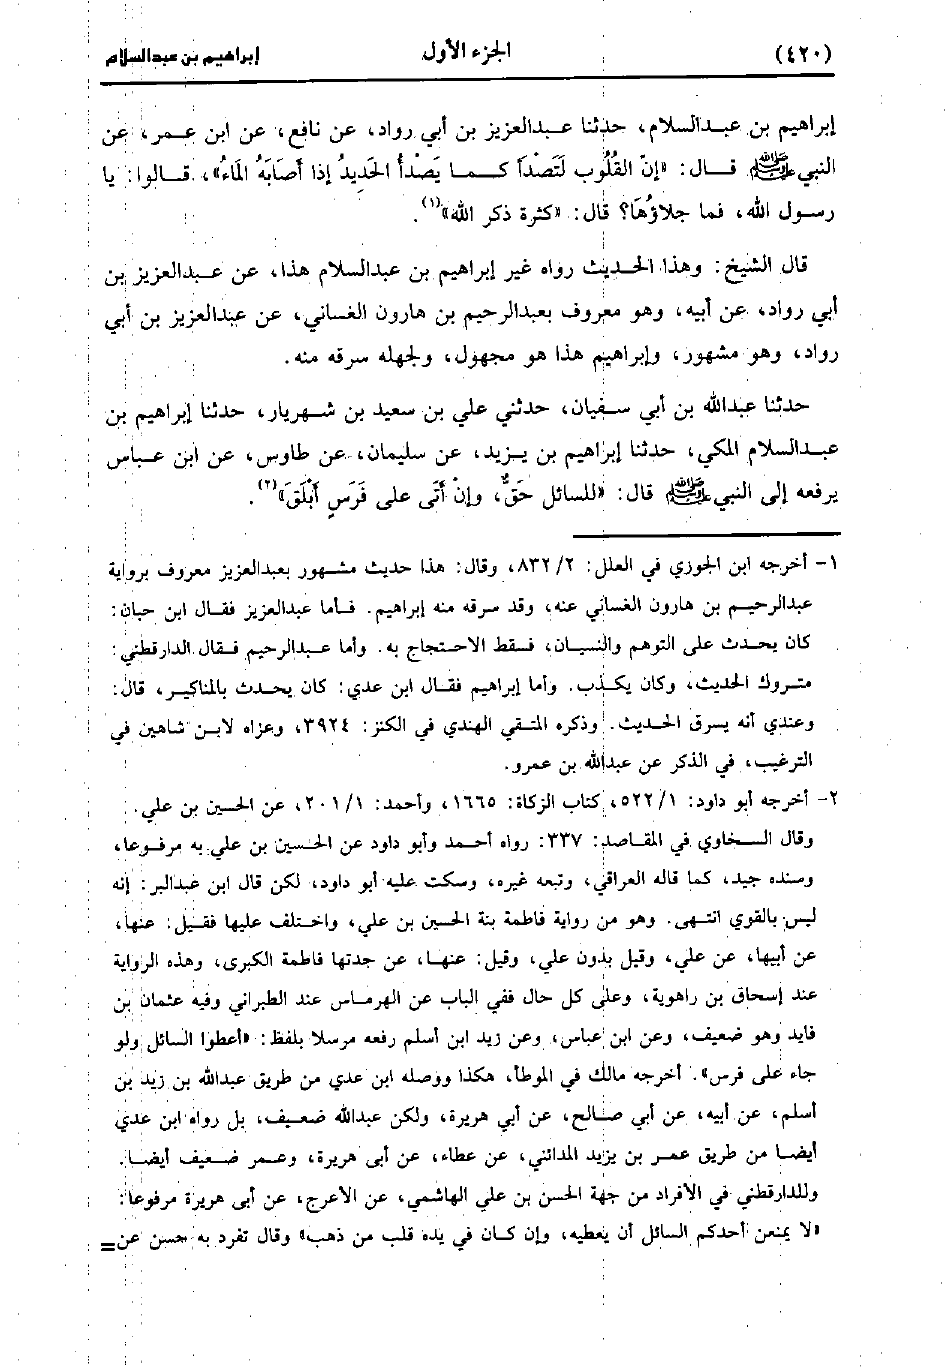 (٤٢٠) الجزء الأول إبراهيم بن عبدالسلام
إبراهيم بن عبدالسلام، حدثنا عبدالعزيز بن أبي رواد، عن نافع، عن ابن عمر، عن
النبي ﷺ قال: «إنّ القُلُوب لَتَصْدَأ كما يَصْدأُ الحَدِيدُ إذا أَصَابَهُ المَاءُ»، قالوا: يا
رسول الله، فما جلاؤُهَا؟ قال: «كثرة ذكر الله»(١).
قال الشيخ: وهذا الحديث رواه غير إبراهيم بن عبدالسلام هذا، عن عبدالعزيز بن
أبي رواد، عن أبيه، وهو معروف بعبدالرحيم بن هارون الغساني، عن عبدالعزيز بن أبي
رواد، وهو مشهور، وإبراهيم هذا هو مجهول، ولجهله سرقه منه.
حدثنا عبدالله بن أبي سفيان، حدثني علي بن سعيد بن شهريار، حدثنا إبراهيم بن
عبدالسلام المكي، حدثنا إبراهيم بن يزيد، عن سليمان، عن طاوس، عن ابن عباس
يرفعه إلى النبي ﷺ قال: «للسائل حَقٌّ، وإنْ أَتَى على فَرَسٍ أَبْلَقَ»(٢).
١- أخرجه ابن الجوزي في العلل: ٨٣٢/٢، وقال: هذا حديث مشهور بعبدالعزيز معروف برواية
عبدالرحيم بن هارون الغساني عنه، وقد سرقه منه إبراهيم. فأما عبدالعزيز فقال ابن حبان:
كان يحدث على التوهم والنسيان، فسقط الاحتجاج به. وأما عبدالرحيم فقال الدارقطني:
متروك الحديث، وكان يكذب. وأما إبراهيم فقال ابن عدي: كان يحدث بالمناكير، قال:
وعندي أنه يسرق الحديث. وذكره المتقي الهندي في الكنز: ٣٩٢٤، وعزاه لابن شاهين في
الترغيب، في الذكر عن عبدالله بن عمرو.
٢- أخرجه أبو داود: ٥٢٢/١، كتاب الزكاة: ١٦٦٥، وأحمد: ٢٠١/١، عن الحسين بن علي.
وقال السخاوي في المقاصد: ٣٣٧: رواه أحمد وأبو داود عن الحسين بن علي به مرفوعا،
وسنده جيد، كما قاله العراقي، وتبعه غيره، وسكت عليه أبو داود، لكن قال ابن عبدالبر: إنه
ليس بالقوي انتهى. وهو من رواية فاطمة بنة الحسين بن علي، واختلف عليها فقيل: عنها،
عن أبيها، عن علي، وقيل بدون علي، وقيل: عنها، عن جدتها فاطمة الكبرى، وهذه الرواية
عند إسحاق بن راهوية، وعلى كل حال ففي الباب عن الهرماس عند الطبراني وفيه عثمان بن
فايد وهو ضعيف، وعن ابن عباس، وعن زيد ابن أسلم رفعه مرسلا بلفظ: «أعطوا السائل ولو
جاء على فرس». أخرجه مالك في الموطأ، هكذا ووصله ابن عدي من طريق عبدالله بن زيد بن
أسلم، عن أبيه، عن أبي صالح، عن أبي هريرة، ولكن عبدالله ضعيف، بل رواه ابن عدي
أيضا من طريق عمر بن يزيد المدائني، عن عطاء، عن أبى هريرة، وعمر ضعيف أيضا.
وللدارقطني في الأفراد من جهة الحسن بن علي الهاشمي، عن الأعرج، عن أبى هريرة مرفوعا:
«لا يمنعن أحدكم السائل أن يعطيه، وإن كان في يده قلب من ذهب» وقال تفرد به حسن عن=